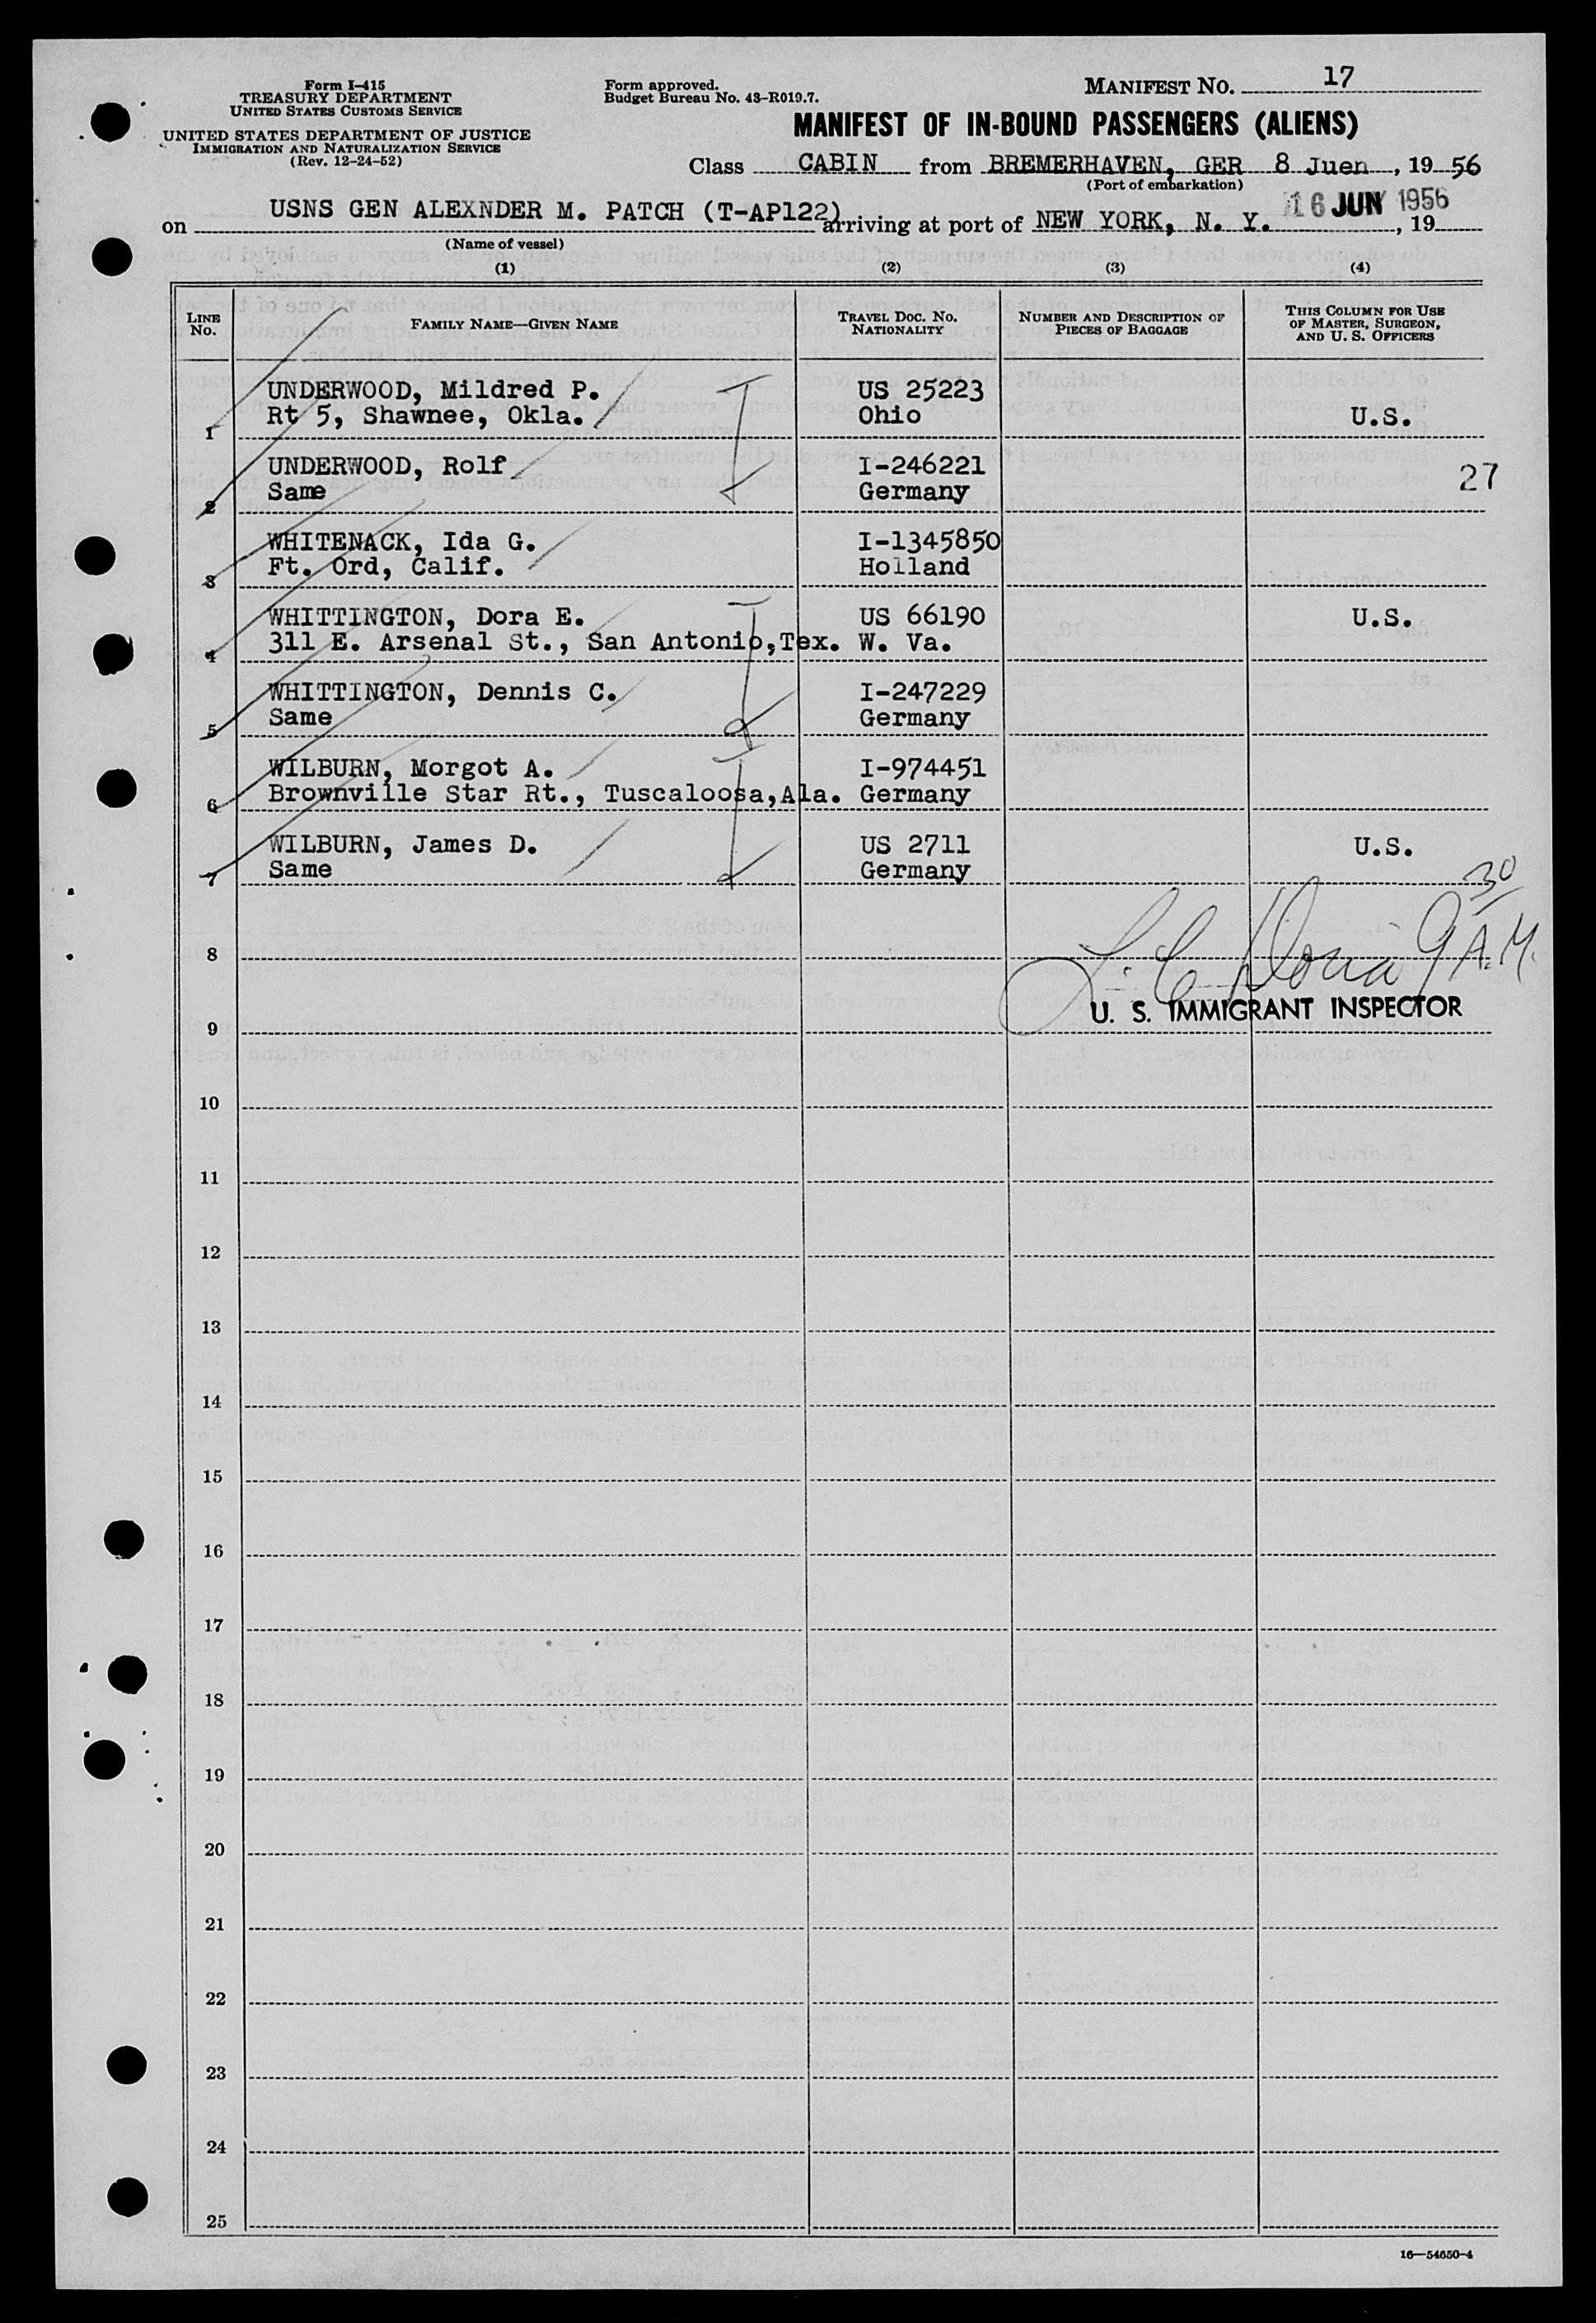 Form I-415
TREASURY DEPARTMENT
UNITED STATES CUSTOMS SERVICE
UNITED STATES DEPARTMENT OF JUSTICE
IMMIGRATION AND NATURALIZATION SERVICE
(Rev. 12-24-52)
Form approved.
Budget Bureau No. 43-R019.7.
MANIFEST NO. 17
MANIFEST OF IN-BOUND PASSENGERS (ALIENS)
Class CABIN from BREMERHAVEN, GER 8 Juen, 19 56
(Port of embarkation)
on USNS GEN ALEXNDER M. PATCH (T-AP122) arriving at port of NEW YORK, N. Y. 16 JUN 1956, 19
(Name of vessel)
(1) (2) (3) (4)
LINE NO. FAMILY NAME—GIVEN NAME TRAVEL DOC. NO. NATIONALITY NUMBER AND DESCRIPTION OF PIECES OF BAGGAGE THIS COLUMN FOR USE OF MASTER, SURGEON, AND U. S. OFFICERS
UNDERWOOD, Mildred P. US 25223
1 Rt 5, Shawnee, Okla. Ohio U.S.
UNDERWOOD, Rolf I-246221 27
2 Same Germany
WHITENACK, Ida G. I-1345850
3 Ft. Ord, Calif. Holland
WHITTINGTON, Dora E. US 66190 U.S.
4 311 E. Arsenal St., San Antonio,Tex. W. Va.
WHITTINGTON, Dennis C. I-247229
5 Same Germany
WILBURN, Morgot A. I-974451
6 Brownville Star Rt., Tuscaloosa,Ala. Germany
WILBURN, James D. US 2711 U.S.
7 Same Germany
8 9 30 A.M.
U. S. IMMIGRANT INSPECTOR
9
10
11
12
13
14
15
16
17
18
19
20
21
22
23
24
25
16—54650-4